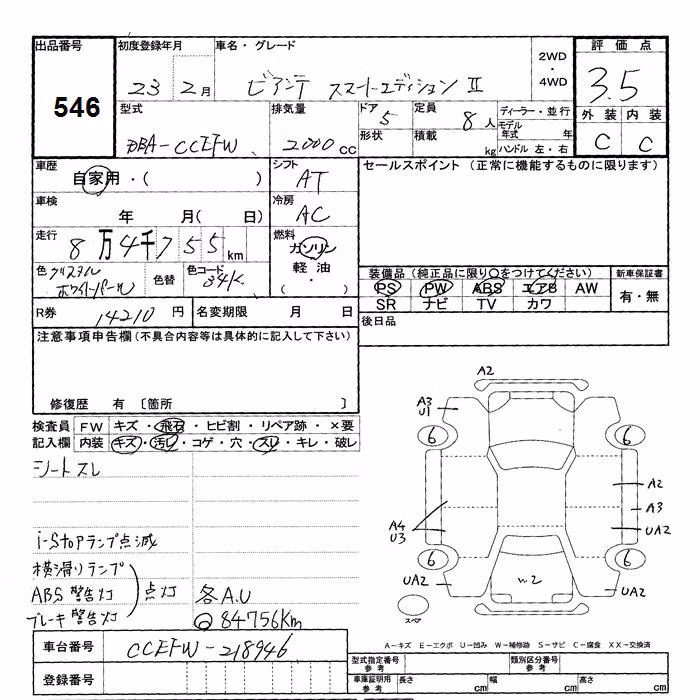 出品番号 初度登録年月 車名・グレード 2WD・4WD 評価点
546 23 2月 ビアンテ スマートエディションⅡ 3.5
型式 排気量 ドア 定員 ディーラー・並行 外装 内装
DBA-CCEFW 2000cc 5 8人 モデル年式 年 C C
形状 積載 kg ハンドル 左・右
車歴 シフト セールスポイント (正常に機能するものに限ります)
自家用・( ) AT
車検 冷房
年 月( 日) AC
走行 燃料
8万4千755km ガソリン
軽油
・( )
色 クリスタルホワイトパール 色替 色コード 34K
装備品(純正品に限り○をつけてください) 新車保証書
PS PW ABS エアB AW 有・無
SR ナビ TV カワ
R券 14210円 名変期限 月 日 後日品
注意事項申告欄(不具合内容等は具体的に記入して下さい)
修復歴 有 〔箇所 〕
検査員 FW キズ・飛石・ヒビ割・リペア跡・×要
記入欄 内装 キズ・汚レ・コゲ・穴・スレ・キレ・破レ
シートスレ
i-stopランプ点滅
横滑りランプ
ABS警告灯 点灯 各A.U
ブレーキ警告灯 84756Km
A2
A3
U1
6 6
A2
A3
A4
U3 UA2
6 6
UA2 W2 UA2
スペア
A-キズ E-エクボ U-凹み W-補修跡 S-サビ C-腐食 XX-交換済
車台番号 CCEFW-218946
型式指定番号 参考 類別区分番号 参考
登録番号 車庫証明用 参考 長さ cm 幅 cm 高さ cm